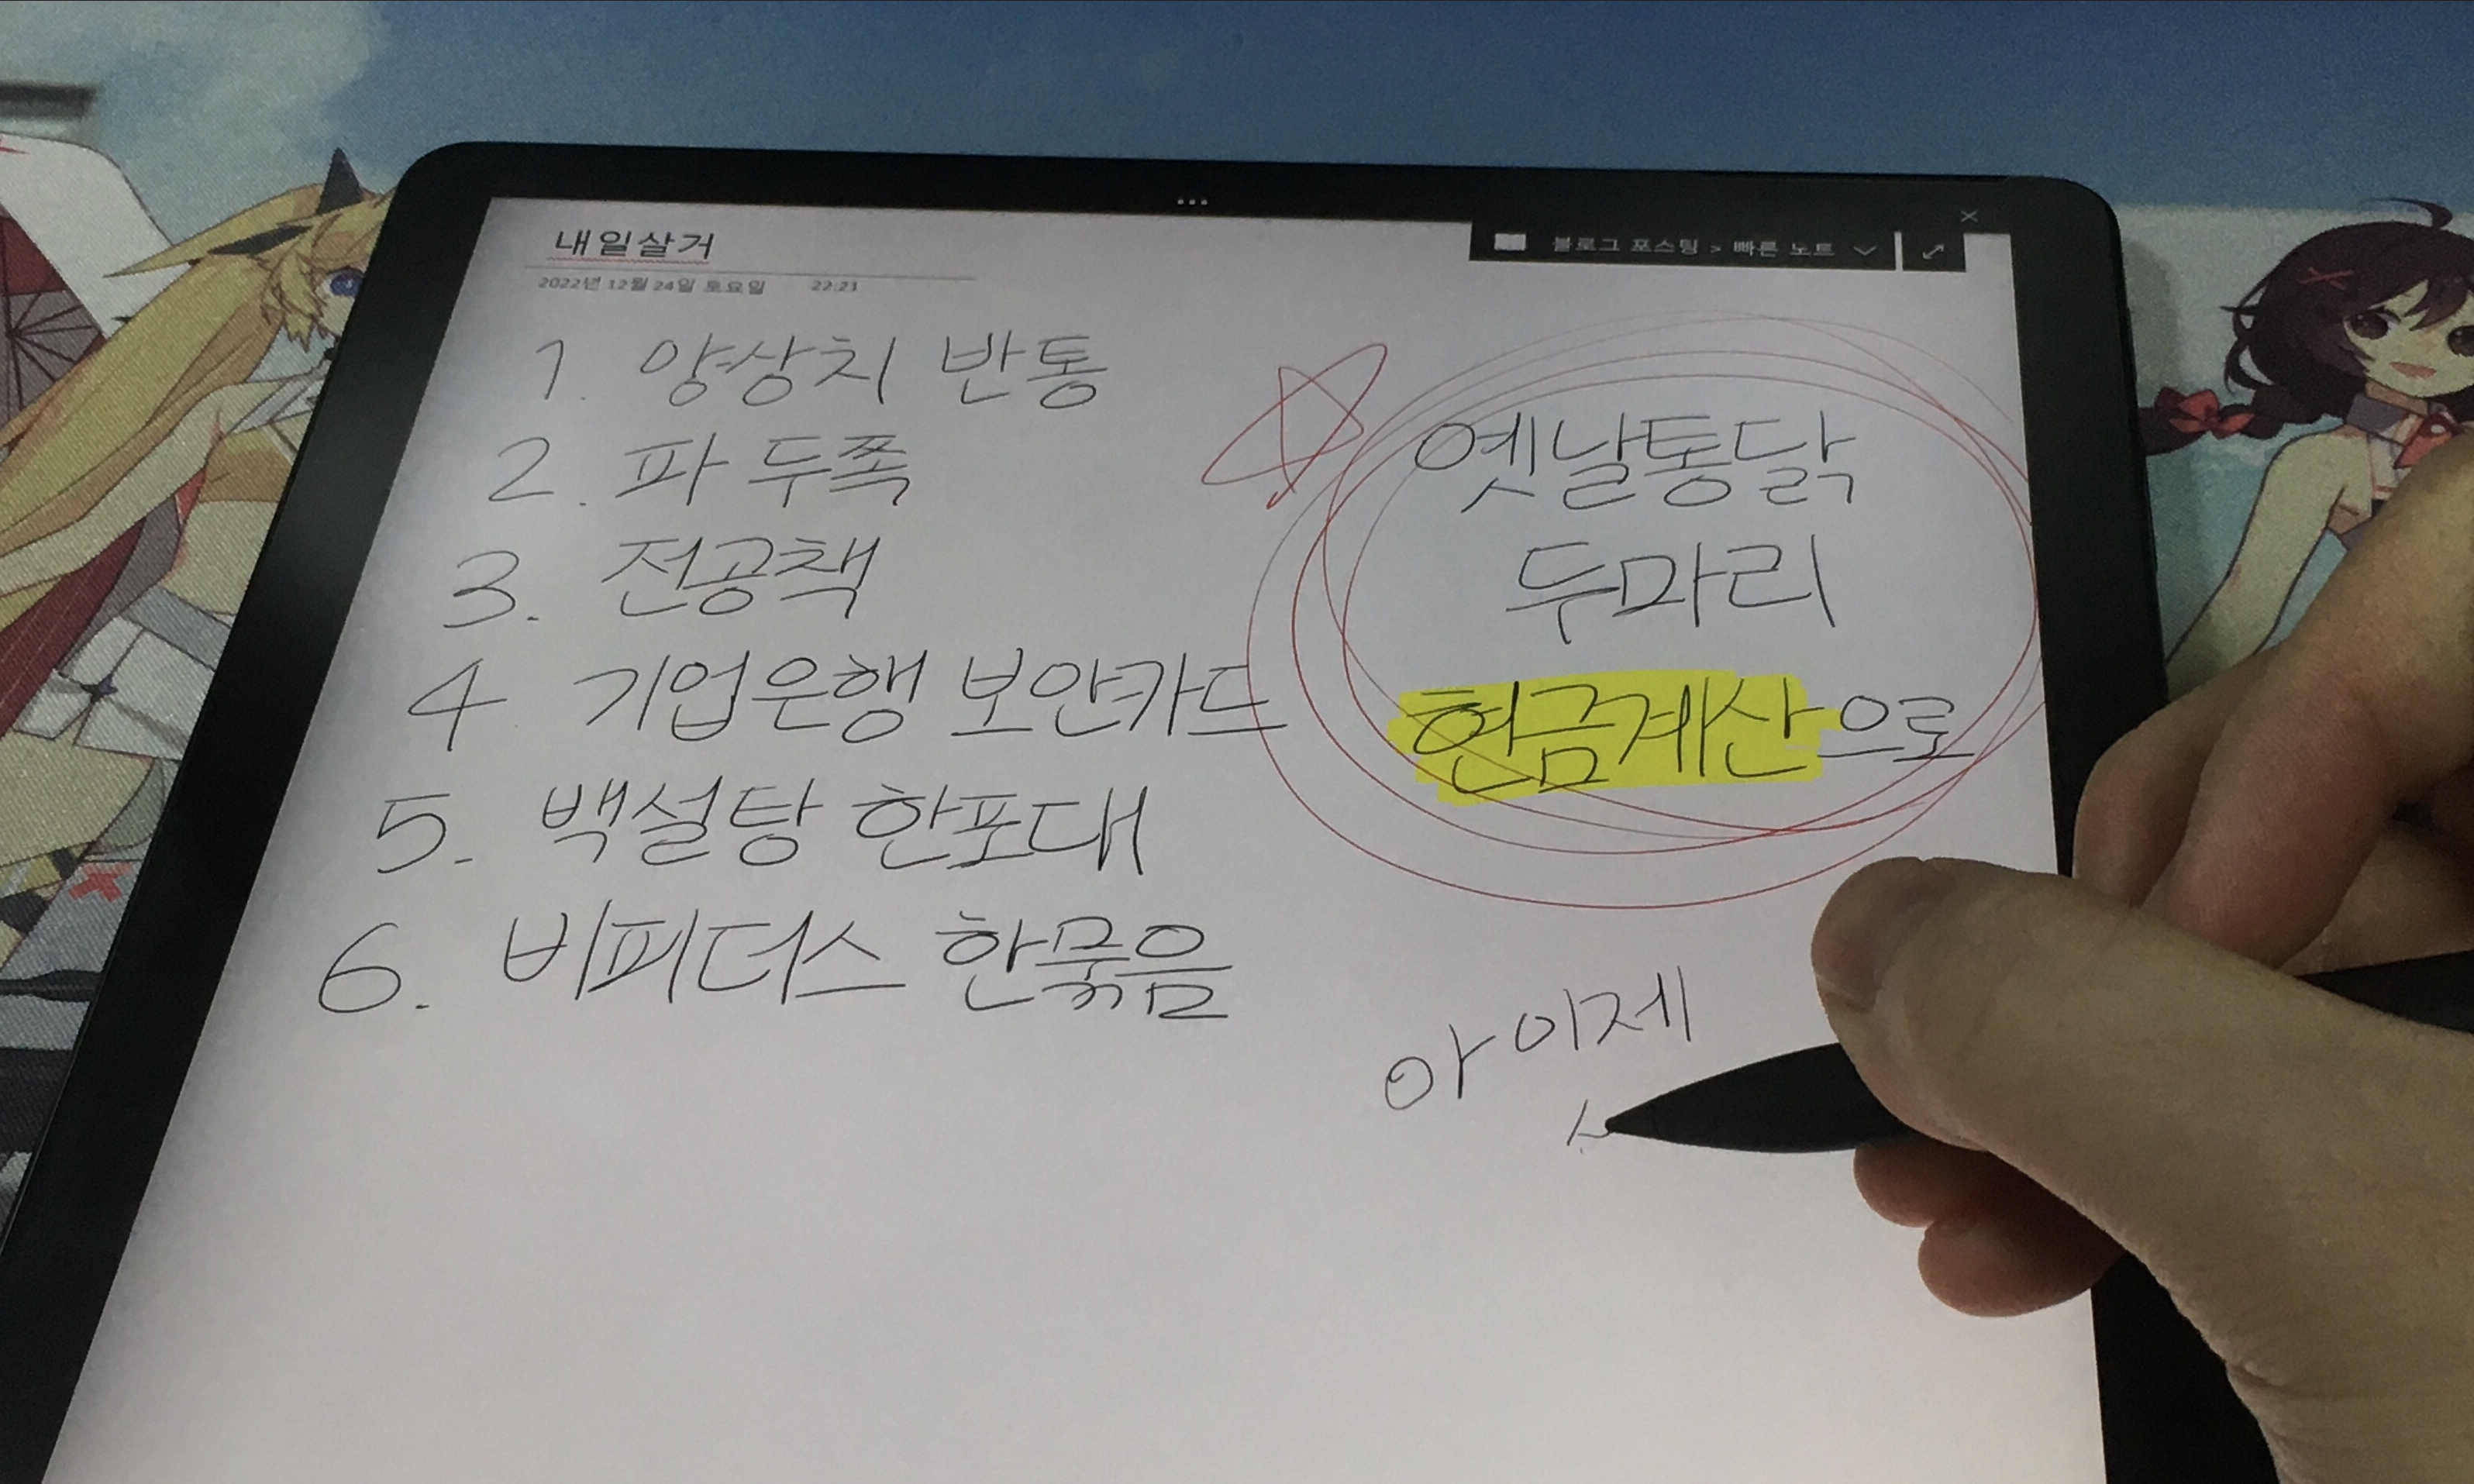 내일살거
블로그 포스팅 > 빠른 노트
2022년 12월 24일 토요일 22:21
1. 양상치 반통
2. 파 두쪽
3. 전공책
4. 기업은행 보안카드
5. 백설탕 한포대
6. 비피더스 한묶음
옛날통닭
두마리
현금계산으로
아 이제